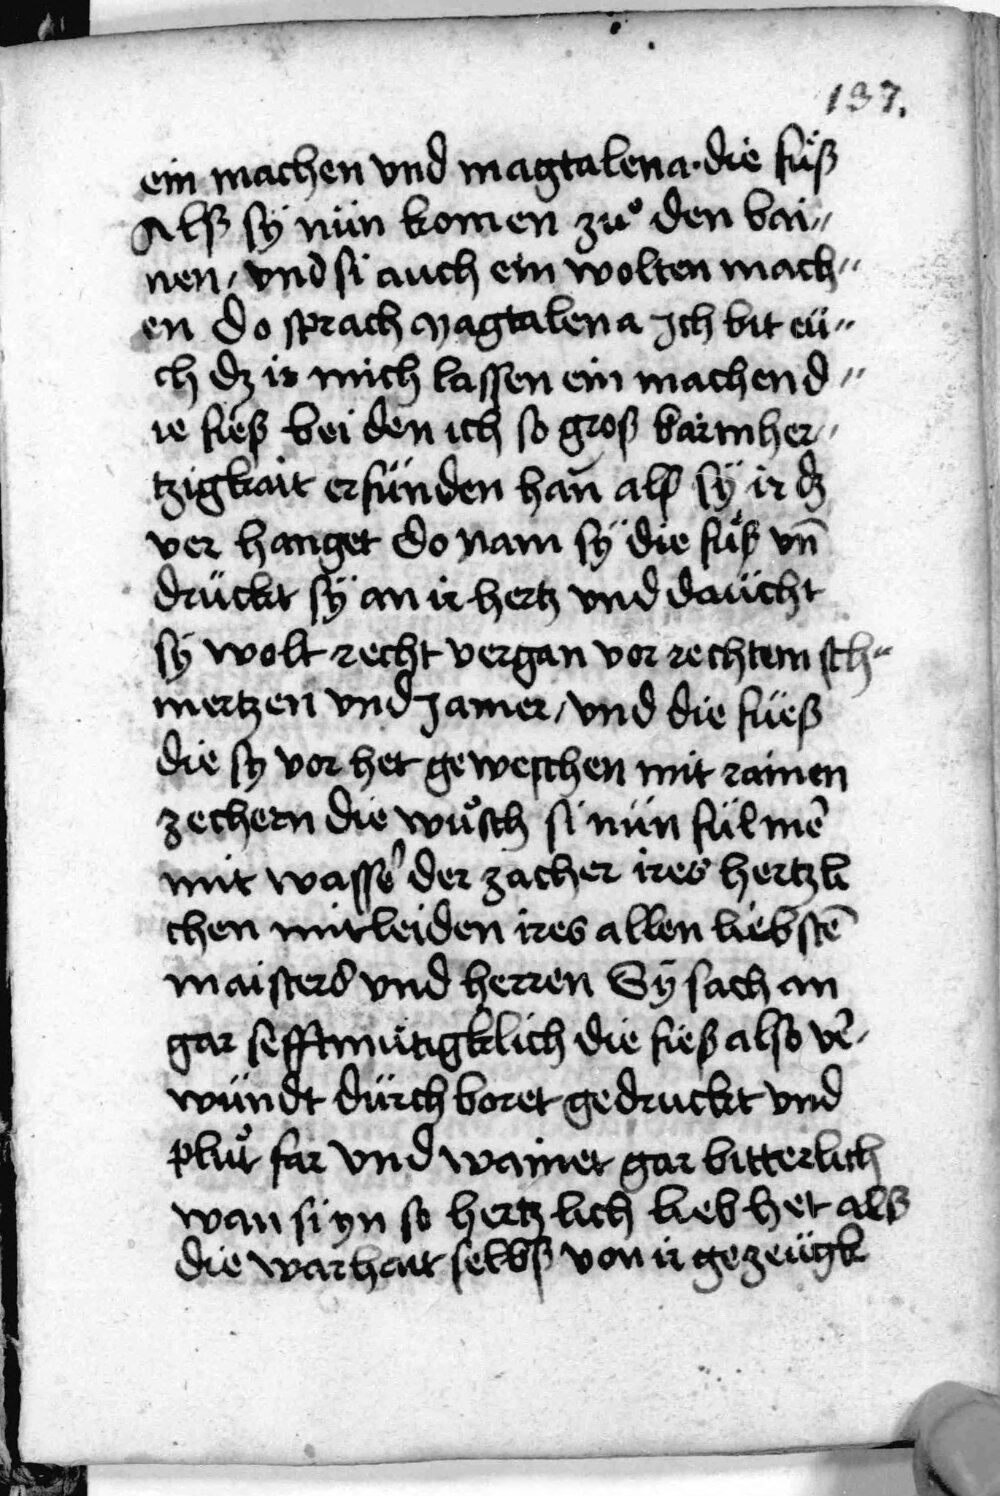 137.
ein machen vnd magtalena. die fuͤß
Alß sÿ nün komen zuͦ den bai„
nen / vnd si auch ein wolten mach„
en do sprach Magtalena Ich bit eü„
ch dz ir mich lassen ein machen d„
ie fieß bei den ich so groß barmher„
tzigkait erfünden han̄ alß sÿ ir dz
ver hanget do nam sÿ die fuͤß vn̄
drückt sÿ an ir hertz vnd daücht
sÿ wolt recht vergan vor rechtem sch„
mertzen vnd Jamer / vnd die füeß
die sÿ vor het geweschen mit rainen
zechern die wuͦsch si nün fül mē
mit wasser der zacher ires hertzli
chen mitleiden ires allen liebstē
maisters vnd herren Sÿ sach an
gar sefftmütigklich die fieß also v̄er
wündt dürch boret gedruckt vnd
pluͦt far vnd wainet gar bitterlich
wan si yn so hertzlich lieb het als
die warhait selbß von ir gezeügk